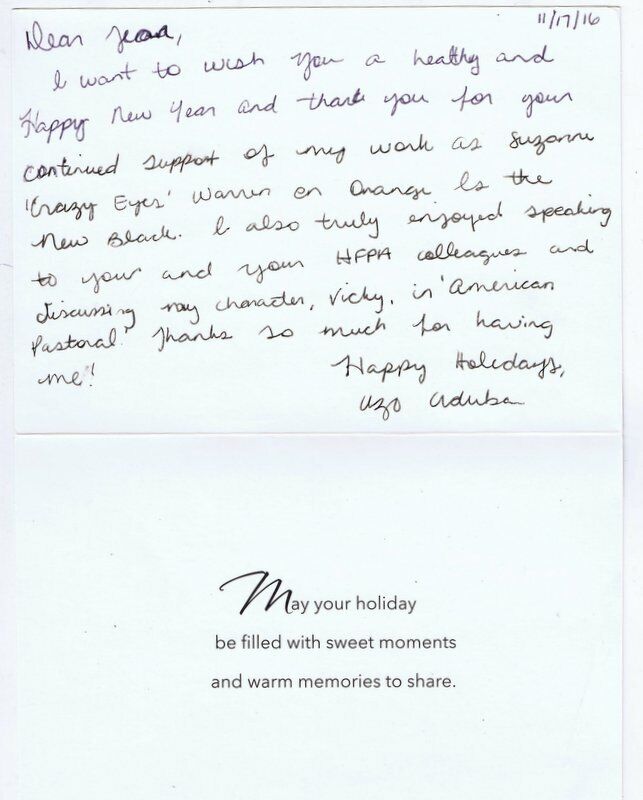 11/17/16
Dear Jean,
I want to wish you a healthy and
Happy New Year and thank you for your
continued support of my work as Suzanne
'Crazy Eyes' Warren on Orange Is the
New Black. I also truly enjoyed speaking
to your and your HFPA colleagues and
discussing my character, Vicky, in 'American
Pastoral.' Thanks so much for having
me!
Happy Holidays,
Uzo Aduba
May your holiday
be filled with sweet moments
and warm memories to share.